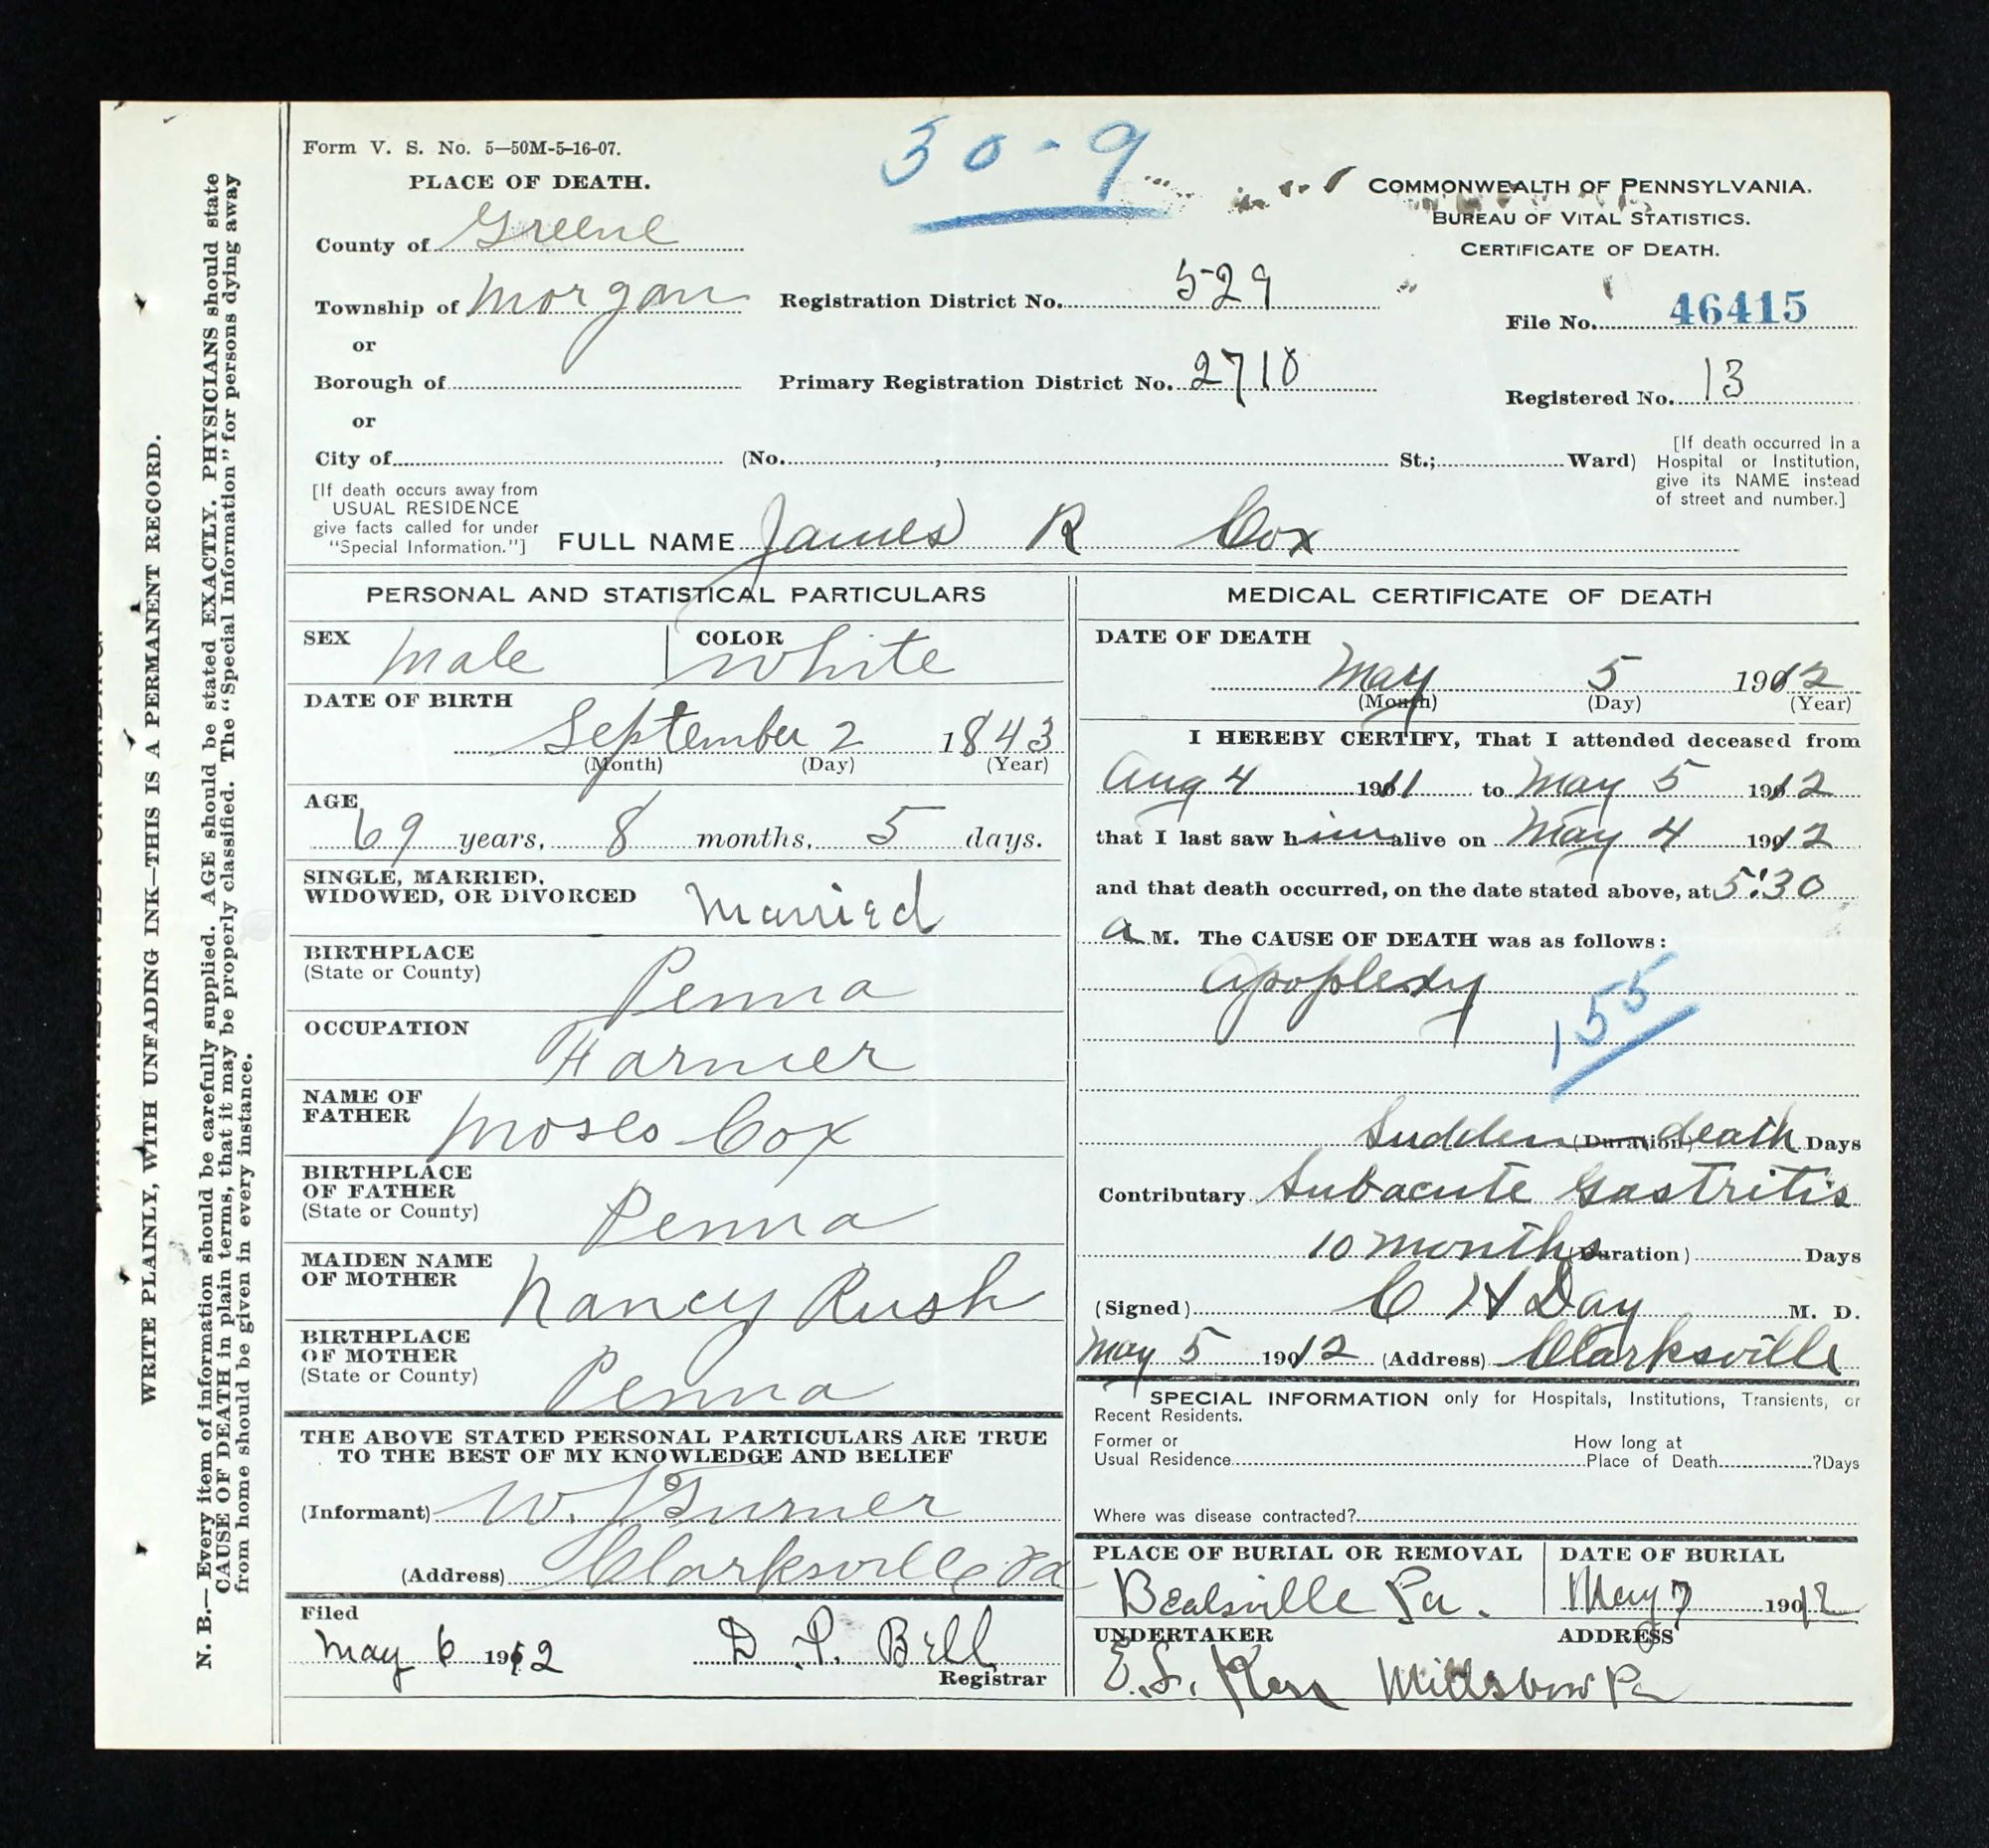 Form V. S. No. 5—50M-5-16-07.
30-9
PLACE OF DEATH.
County of Greene
Township of Morgan
or
Borough of
or
City of (No. , St.; Ward)
COMMONWEALTH OF PENNSYLVANIA.
BUREAU OF VITAL STATISTICS.
CERTIFICATE OF DEATH.
Registration District No. 529
File No. 46415
Primary Registration District No. 2710
Registered No. 13
[If death occurred in a
Hospital or Institution,
give its NAME instead
of street and number.]
[If death occurs away from
USUAL RESIDENCE
give facts called for under
"Special Information."]
FULL NAME James R Cox
PERSONAL AND STATISTICAL PARTICULARS
SEX Male
COLOR White
DATE OF BIRTH
September 2 1843
(Month) (Day) (Year)
AGE
69 years, 8 months, 5 days.
SINGLE, MARRIED,
WIDOWED, OR DIVORCED Married
BIRTHPLACE
(State or County) Penna
OCCUPATION
Farmer
NAME OF
FATHER Moses Cox
BIRTHPLACE
OF FATHER
(State or County) Penna
MAIDEN NAME
OF MOTHER Nancy Rush
BIRTHPLACE
OF MOTHER
(State or County) Penna
THE ABOVE STATED PERSONAL PARTICULARS ARE TRUE
TO THE BEST OF MY KNOWLEDGE AND BELIEF
(Informant) W. Turner
(Address) Clarksville Pa
Filed
May 6 1912 D. P. Bell
Registrar
MEDICAL CERTIFICATE OF DEATH
DATE OF DEATH
May 5 1912
(Month) (Day) (Year)
I HEREBY CERTIFY, That I attended deceased from
Aug 4 1911 to May 5 1912
that I last saw him alive on May 4 1912
and that death occurred, on the date stated above, at 5:30
a M. The CAUSE OF DEATH was as follows:
Apoplexy
155
Sudden (Duration) death Days
Contributary Subacute Gastritis
10 months (Duration) Days
(Signed) C H Day M. D.
May 5 1912 (Address) Clarksville
SPECIAL INFORMATION only for Hospitals, Institutions, Transients, or
Recent Residents.
Former or
Usual Residence
How long at
Place of Death ?Days
Where was disease contracted?
PLACE OF BURIAL OR REMOVAL
Bealsville Pa.
DATE OF BURIAL
May 7 1912
UNDERTAKER
ADDRESS
E. L. Millsboro Pa
WRITE PLAINLY, WITH UNFADING INK—THIS IS A PERMANENT RECORD.
N. B.—Every item of information should be carefully supplied. AGE should be stated EXACTLY. PHYSICIANS should state
CAUSE OF DEATH in plain terms, that it may be properly classified. The "Special Information" for persons dying away
from home should be given in every instance.